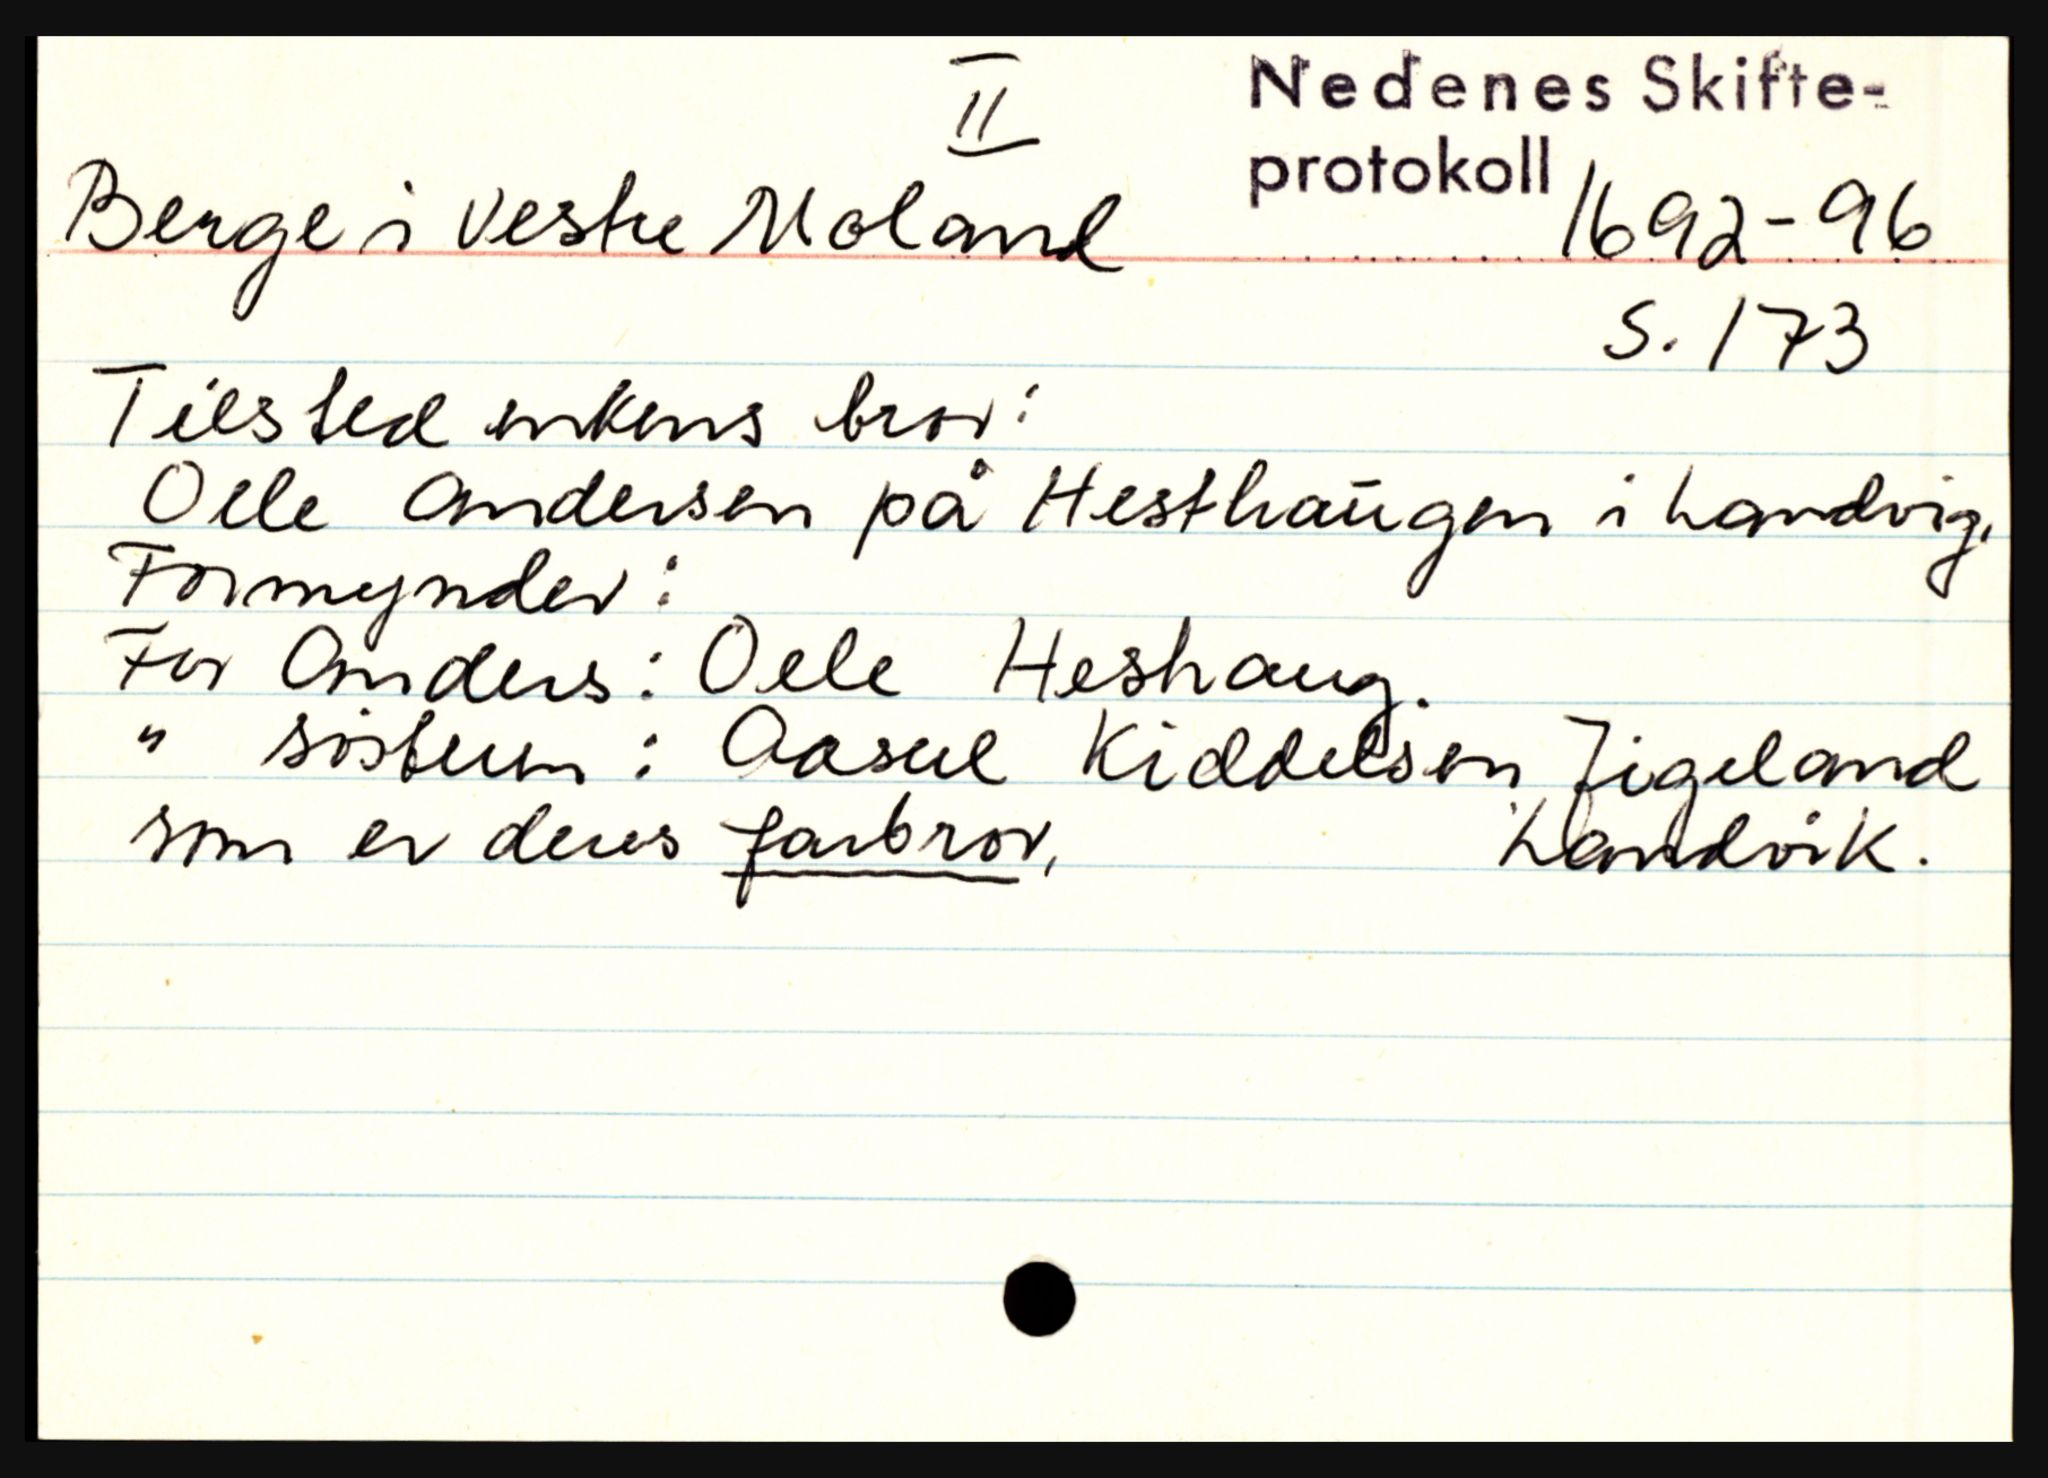 II
Nedenes Skifte-
protokoll 1692-96
Berge i Vestre Moland
S. 173
Tilsted enkens bror:
Oele Andersen på Hesthaugen i Landvig.
Formynder:
For Anders: Oele Heshaug.
" søstrene: Aasul Kiddelsen Tigeland
som er deres farbror, Landvik.